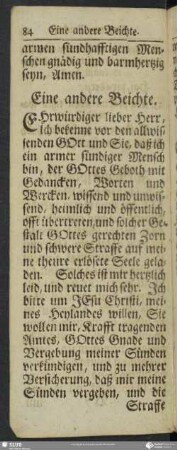 84 Eine andere Beichte.
armen sündhafftigen Men-
schen gnädig und barmhertzig
seyn, Amen.
Eine andere Beichte.
EHrwürdiger lieber Herr,
Ich bekenne vor den allwis-
senden GOtt und Sie, daß ich
ein armer sündiger Mensch
bin, der GOttes Geboth mit
Gedancken, Worten und
Wercken, wissend und unwis-
send, heimlich und öffentlich,
offt übertreten, und solcher Ge-
stalt GOttes gerechten Zorn
und schwere Straffe auf mei-
ne theure erlösete Seele gela-
den. Solches ist mir hertzlich
leid, und reuet mich sehr. Ich
bitte um JEsu Christi, mei-
nes Heylandes willen, Sie
wollen mir, Krafft tragenden
Amtes, GOttes Gnade und
Vergebung meiner Sünden
verkündigen, und zu mehrer
Versicherung, daß mir meine
Sünden vergeben, und die
Straffe